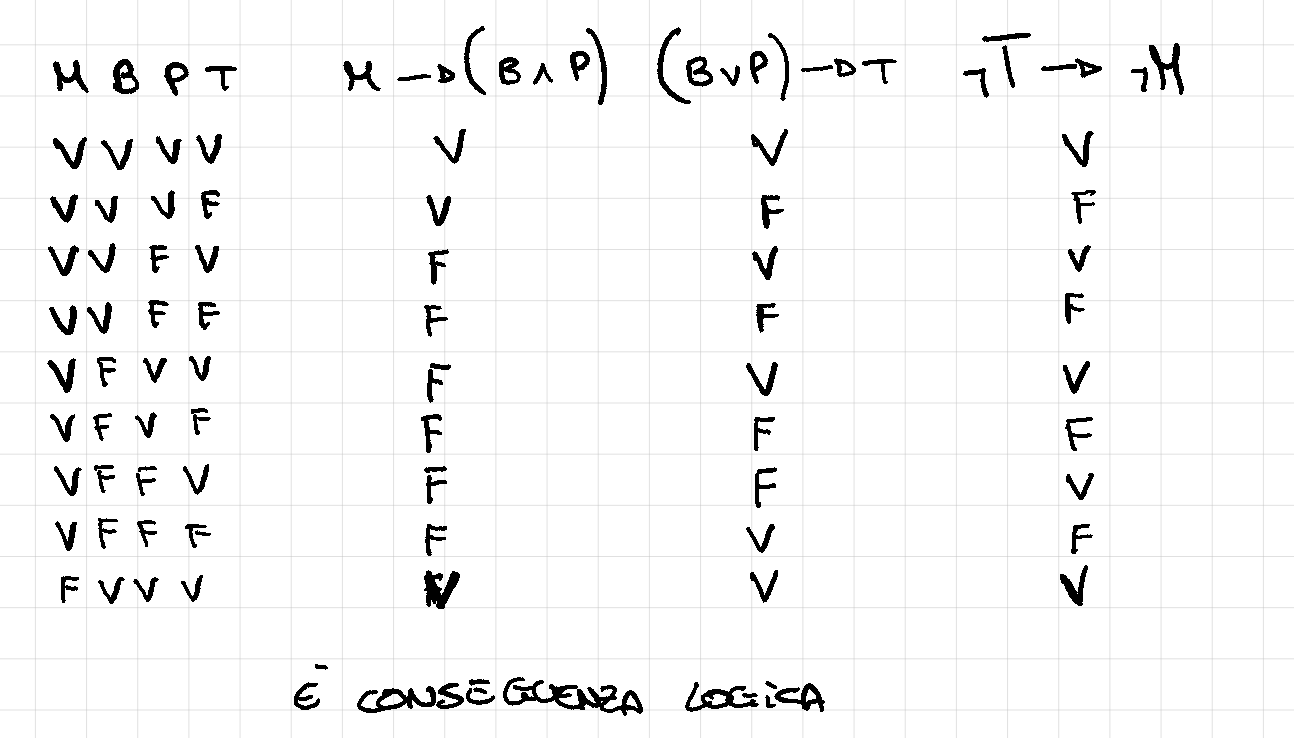 M B P T M → (B ∧ P) (B ∨ P) → T ¬T → ¬M
V V V V V V V
V V V F V F F
V V F V F V V
V V F F F F F
V F V V F V V
V F V F F F F
V F F V F F V
V F F F F V F
F V V V V V V
È CONSEGUENZA LOGICA